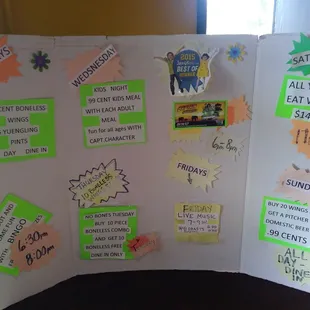 CENT BONELESS
WINGS
YUENGLING
PINTS
DAY DINE IN
BINGO
6:30pm
8:00pm
WEDNESDAY
KIDS NIGHT
99 CENT KIDS MEAL
WITH EACH ADULT
MEAL
fun for all ages with
CAPT.CHARACTER
NO BONES TUESDAY
BUY 10 PIECE
BONELESS COMBO
AND GET 10
BONELESS FREE
DINE IN ONLY
BEST OF
6pm-8pm
FRIDAYS
FRIDAY
LIVE MUSIC
SAT
ALL Y
EAT W
$14
SUNDA
BUY 20 WINGS
GET A PITCHER
DOMESTIC BEER
.99 CENTS
ALL
DAY -
DINE IN